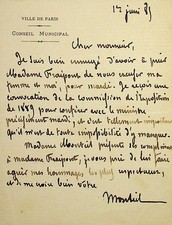 VILLE DE PARIS
CONSEIL MUNICIPAL
1er juin 89
Cher monsieur,
Je suis bien ennuyé d'avoir à prier
Madame Fraipont de nous excuser ma
femme et moi, pour mardi. Je reçois une
convocation de la commission de l'Exposition
de 1889 pour conférer avec le ministre
précisément mardi; et c'est tellement important
qu'il m'est de toute impossibilité d'y manquer.
Madame Monteil présente ses compliments
à madame Fraipont, je vous prie de lui faire
agréer mes hommages les plus respectueux,
et de me croire bien vôtre
Monteil